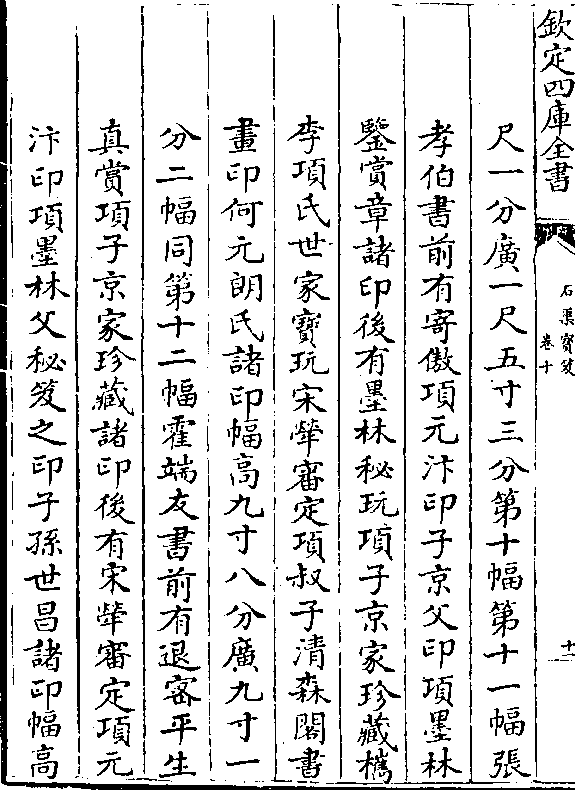 欽定四庫全書
石渠寶笈
卷十
十
尺一分廣一尺五寸三分第十幅第十一幅張
孝伯書前有寄傲項元汴印子京父印項墨林
鑒賞章諸印後有墨林秘玩項子京家珍藏檇
李項氏世家寶玩宋犖審定項叔子清森閣書
畫印何元朗氏諸印幅高九寸八分廣九寸一
分二幅同第十二幅霍端友書前有退密平生
真賞項子京家珍藏諸印後有宋犖審定項元
汴印項墨林父秘笈之印子孫世昌諸印幅高